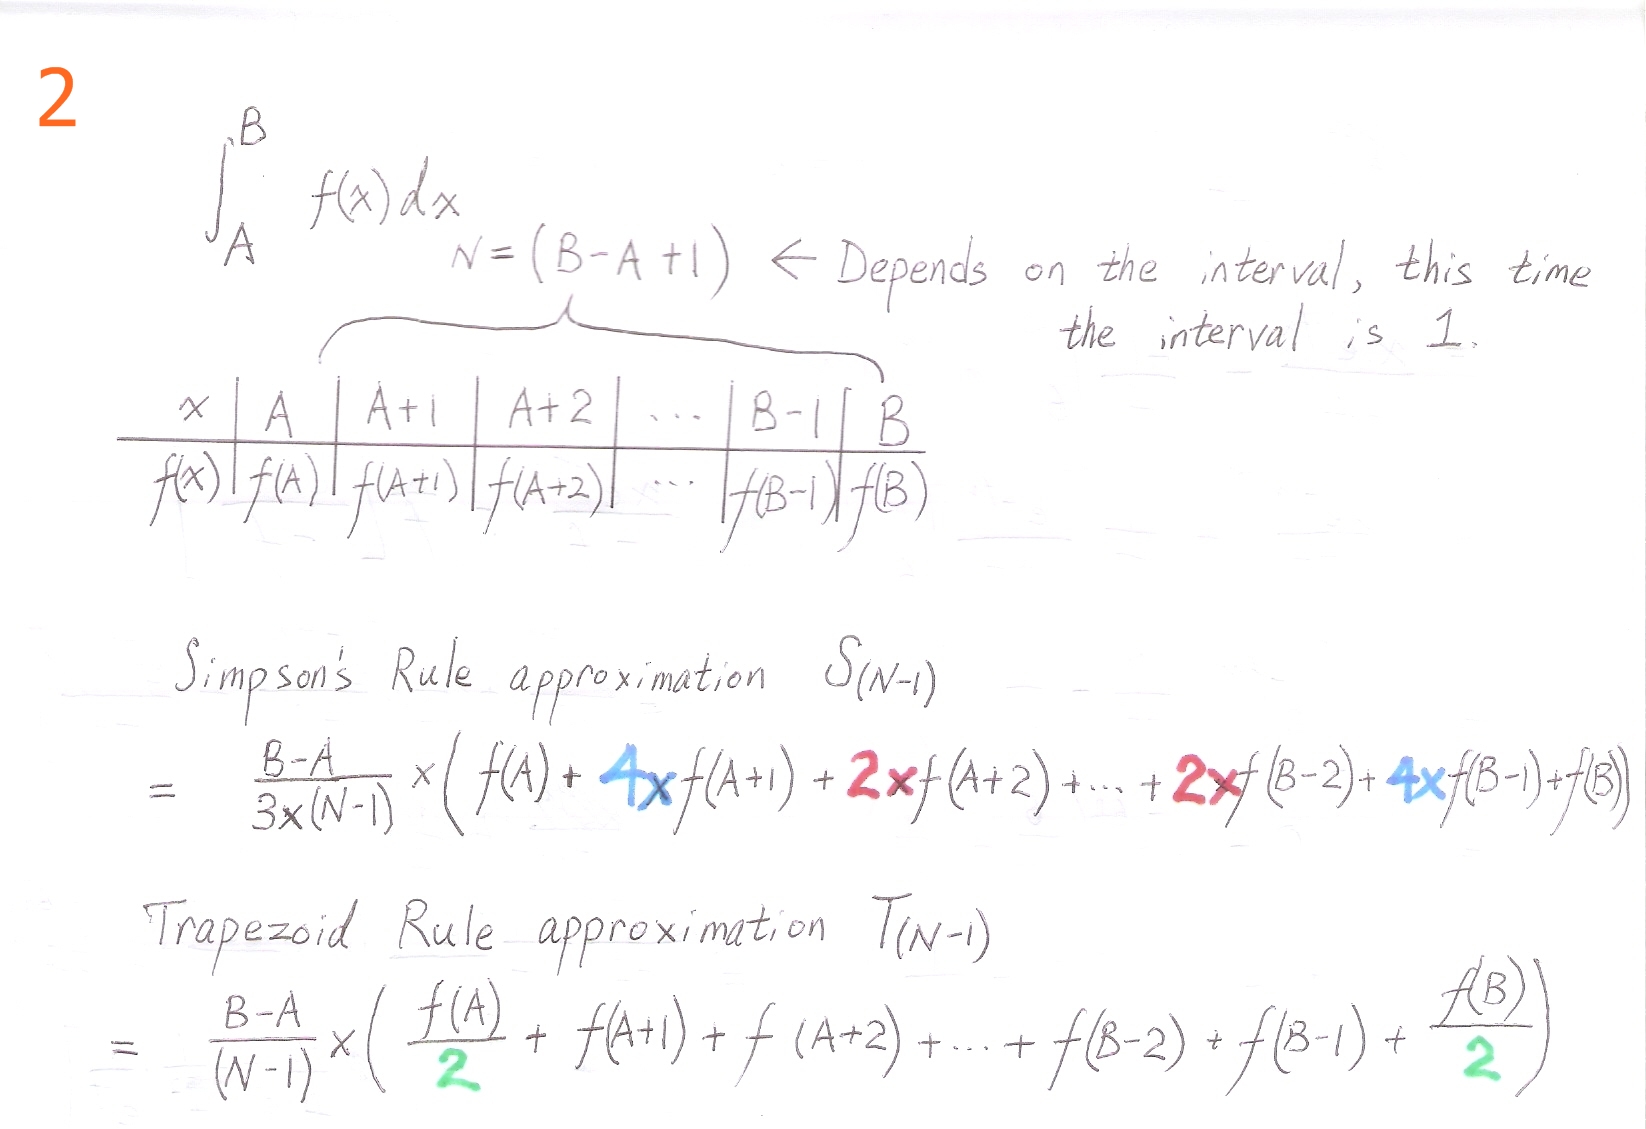 2
∫_A^B f(x) dx
N = (B-A+1) ← Depends on the interval, this time
the interval is 1.
x | A | A+1 | A+2 | ... | B-1 | B
f(x) | f(A) | f(A+1) | f(A+2) | ... | f(B-1) | f(B)
Simpson's Rule approximation S(N-1)
= (B-A)/(3x(N-1)) x ( f(A) + 4x f(A+1) + 2x f(A+2) + ... + 2x f(B-2) + 4x f(B-1) + f(B))
Trapezoid Rule approximation T(N-1)
= (B-A)/(N-1) x ( f(A)/2 + f(A+1) + f(A+2) + ... + f(B-2) + f(B-1) + f(B)/2 )